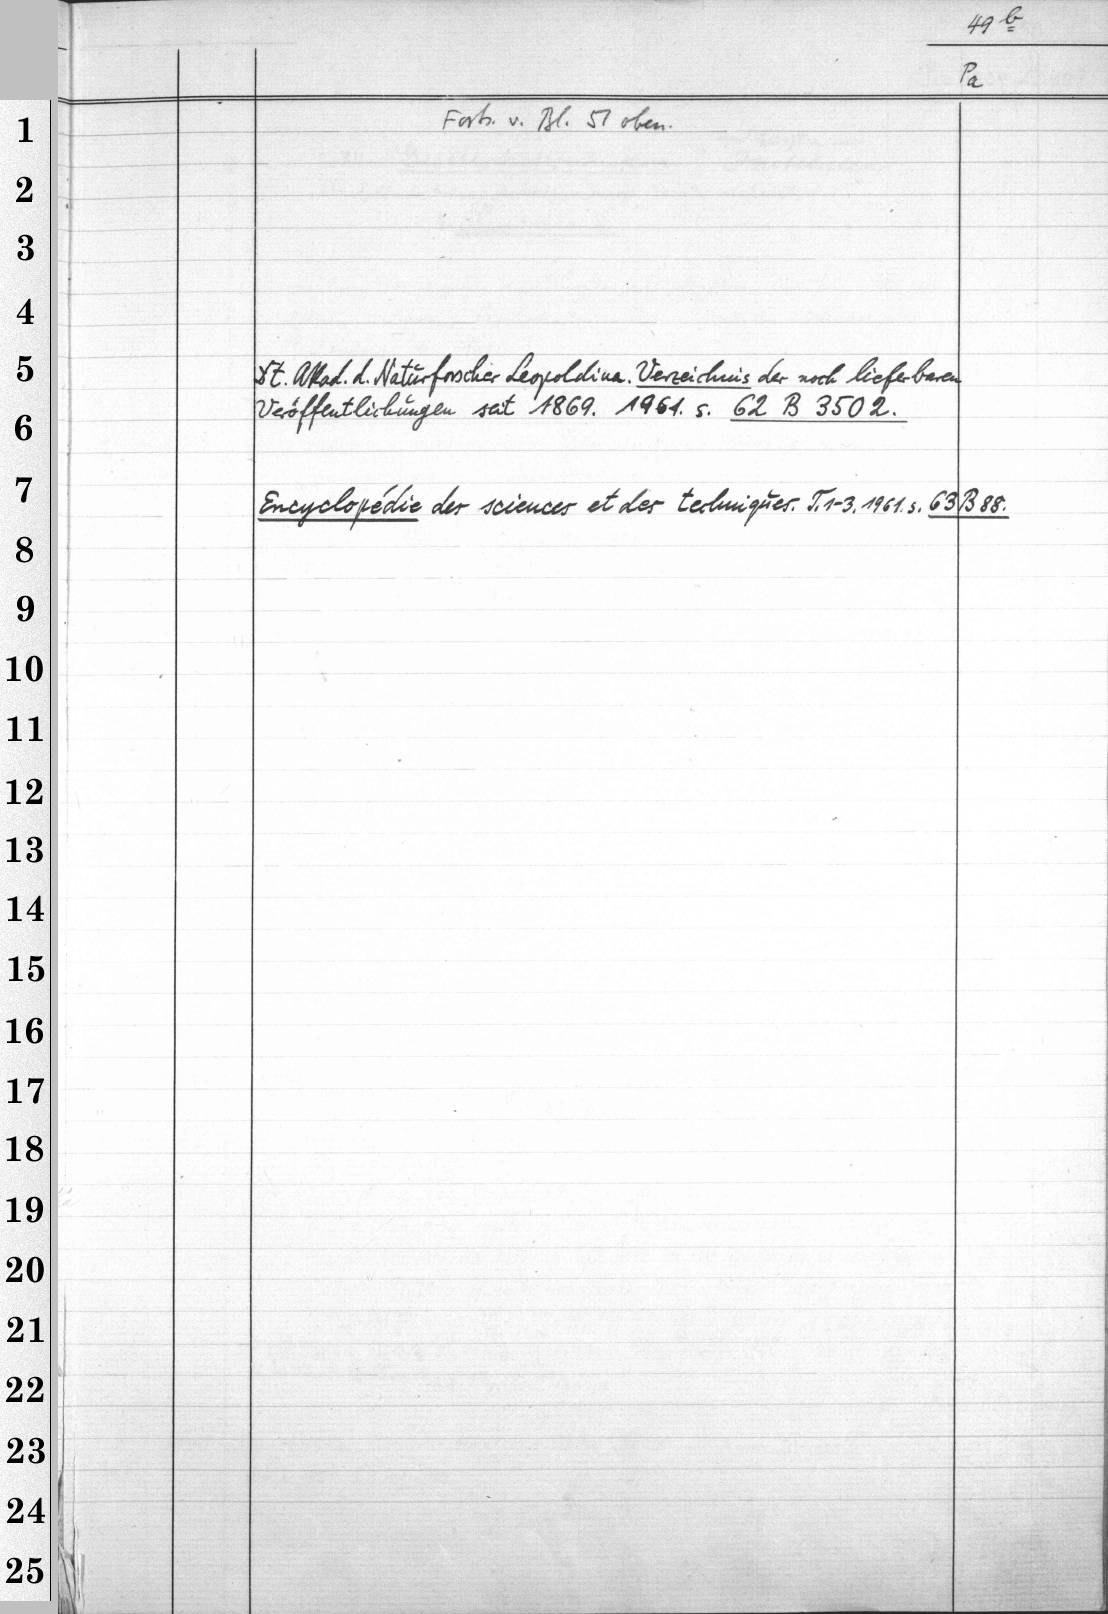 49 b
Pa
1
Forts. v. Bl. 51 oben.
2
3
4
5
Dt. Akad. d. Naturforscher Leopoldina. Verzeichnis der noch lieferbaren
Veröffentlichungen seit 1869. 1961. s. 62 B 3502.
6
7
Encyclopédie des sciences et des techniques. T. 1-3. 1961. s. 63 B 88.
8
9
10
11
12
13
14
15
16
17
18
19
20
21
22
23
24
25